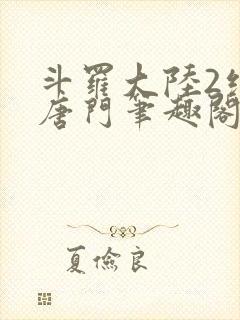 斗羅大陸2
唐門筆趣閣
夏儉良